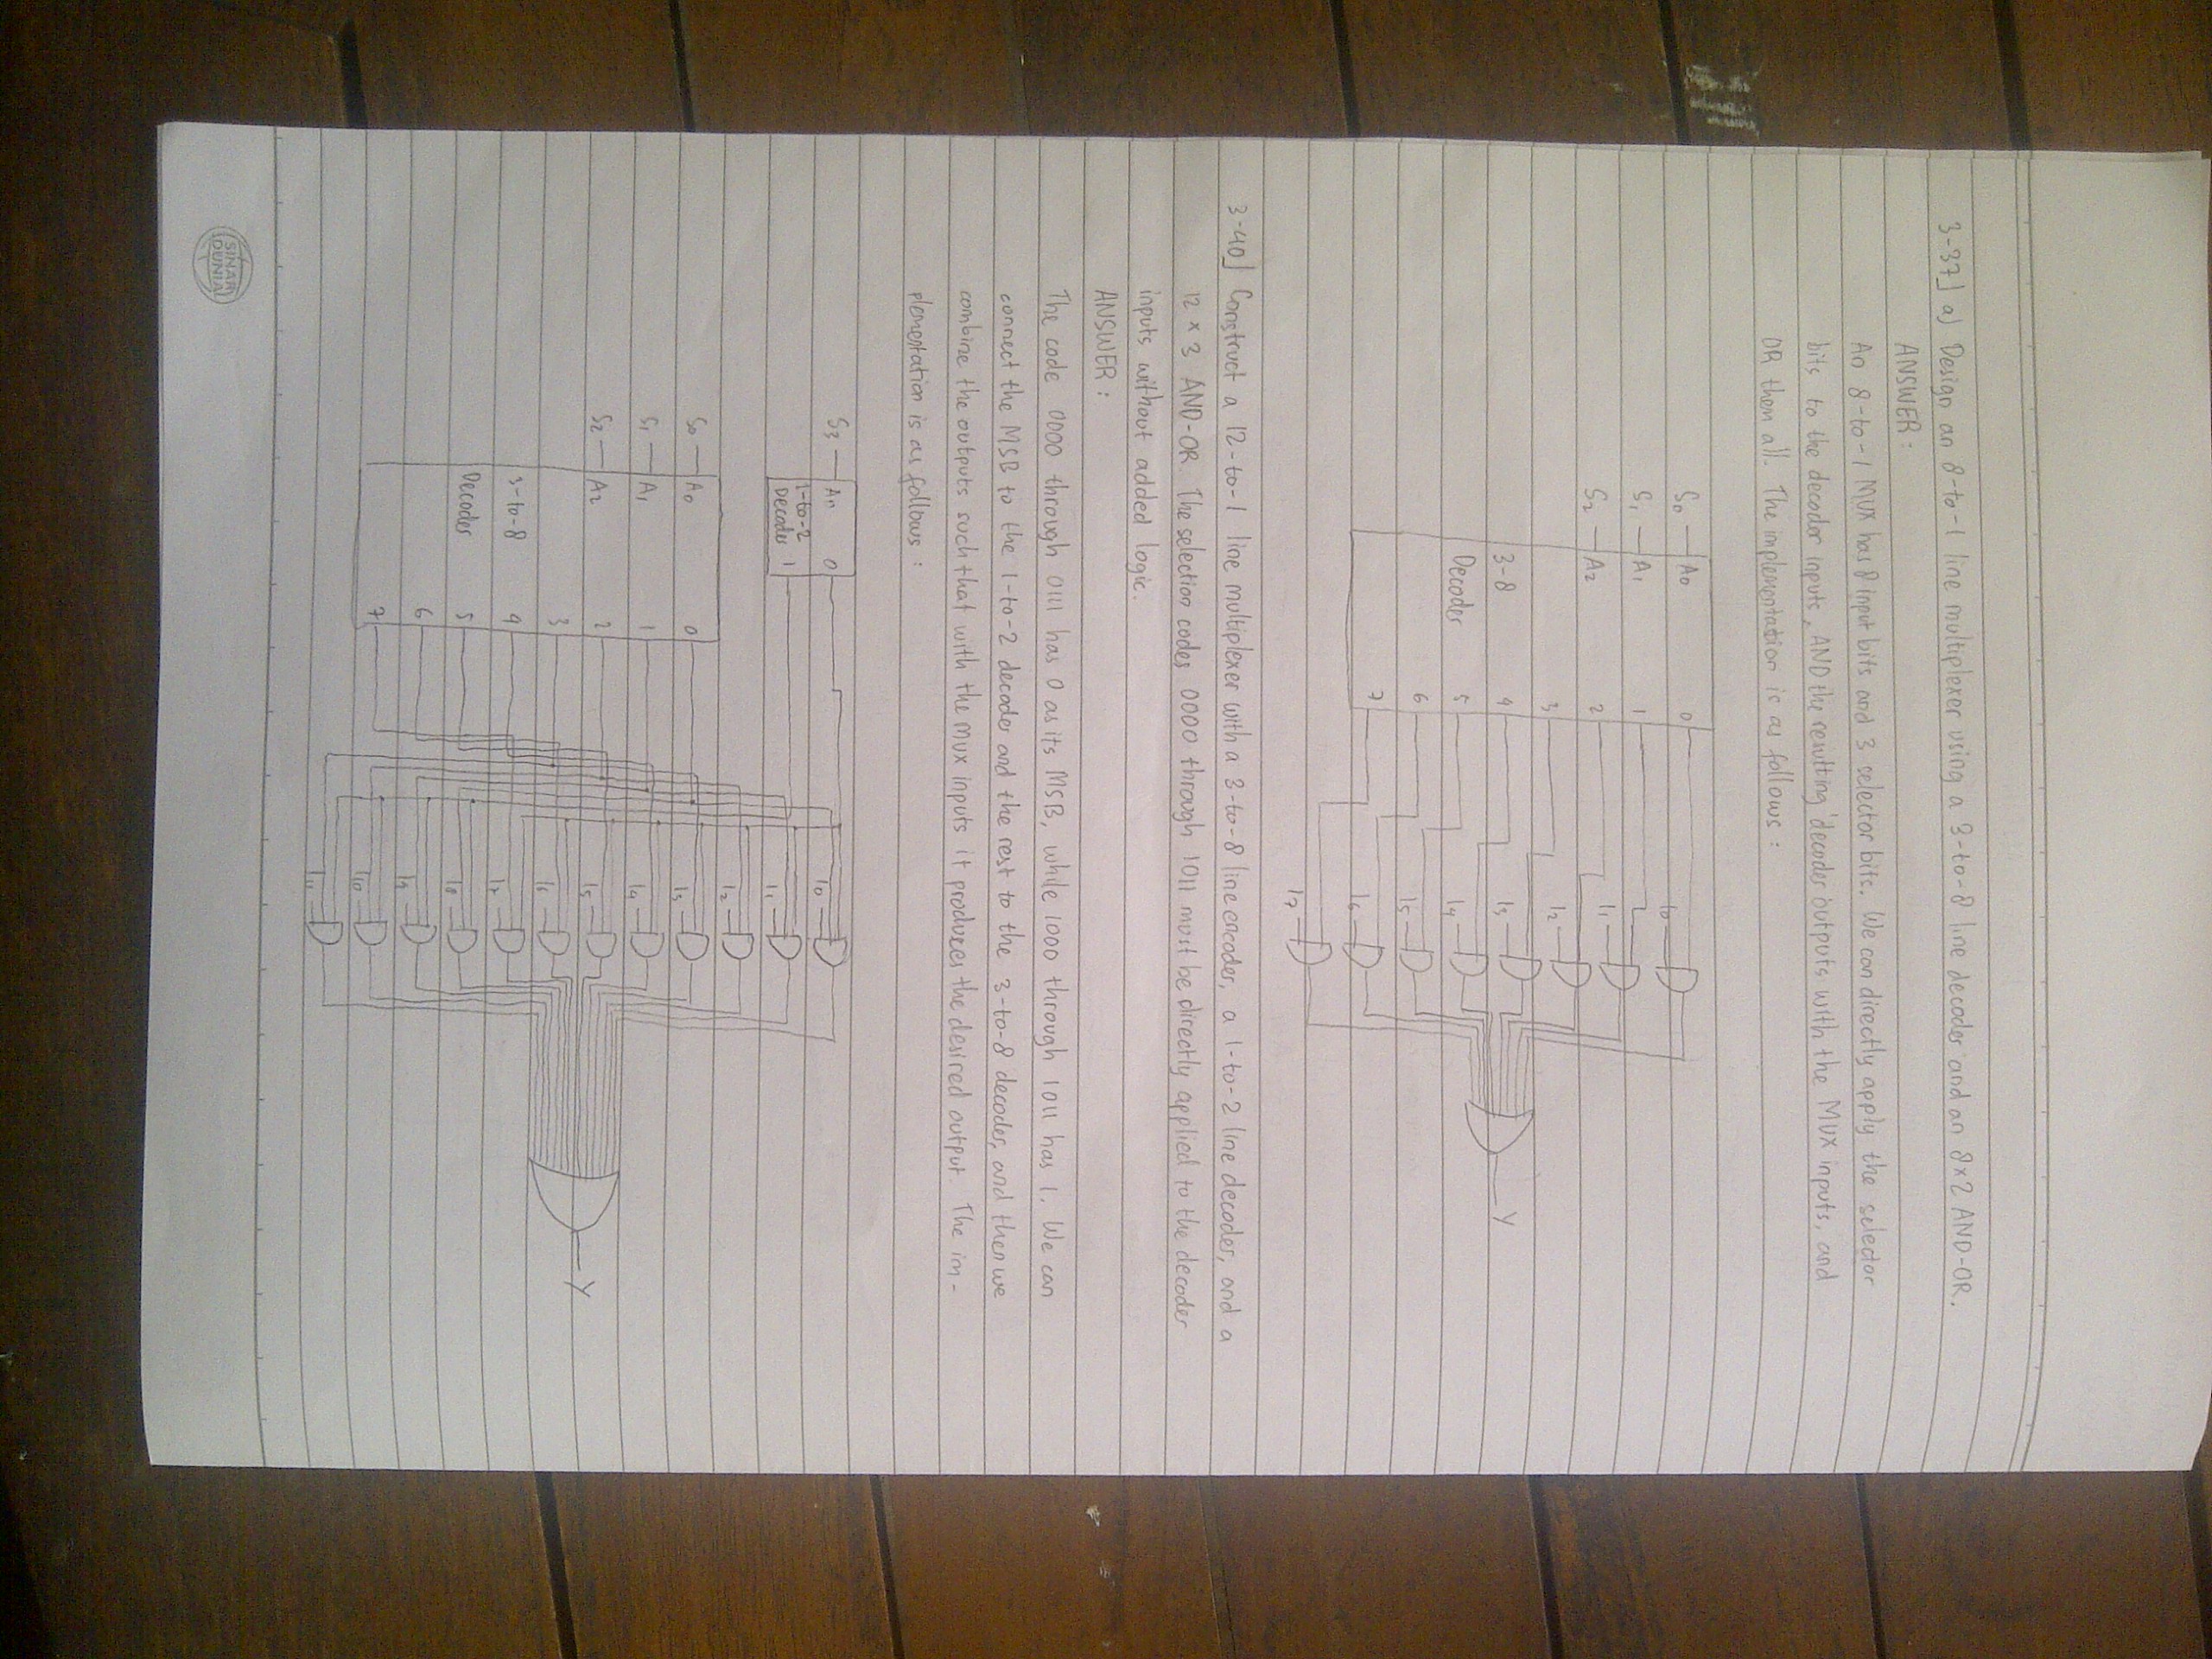 3-37] a) Design an 8-to-1 line multiplexer using a 3-to-8 line decoder and an 8×2 AND-OR.
ANSWER :
An 8-to-1 MUX has 8 input bits and 3 selector bits. We can directly apply the selector
bits to the decoder inputs, AND the resulting decoder outputs with the MUX inputs, and
OR them all. The implementation is as follows :
S0 A0 0 I0
S1 A1 1 I1
S2 A2 2 I2
3 I3
3-8 4 I4
Decoder 5 I5
6 I6
7 I7
Y
3-40] Construct a 12-to-1 line multiplexer with a 3-to-8 line encoder, a 1-to-2 line decoder, and a
12 × 3 AND-OR. The selection codes 0000 through 1011 must be directly applied to the decoder
inputs without added logic.
ANSWER :
The code 0000 through 0111 has 0 as its MSB, while 1000 through 1011 has 1. We can
connect the MSB to the 1-to-2 decoder and the rest to the 3-to-8 decoder, and then we
combine the outputs such that with the MUX inputs it produces the desired output. The im-
plementation is as follows :
S3 A0 0 I0
1-to-2
Decoder 1 I1
I2
S0 A0 0 I3
S1 A1 1 I4
S2 A2 2 I5
3 I6
3-to-8 4 I7
Decoder 5 I8
6 I9
7 I10
I11
Y
SINAR
DUNIA